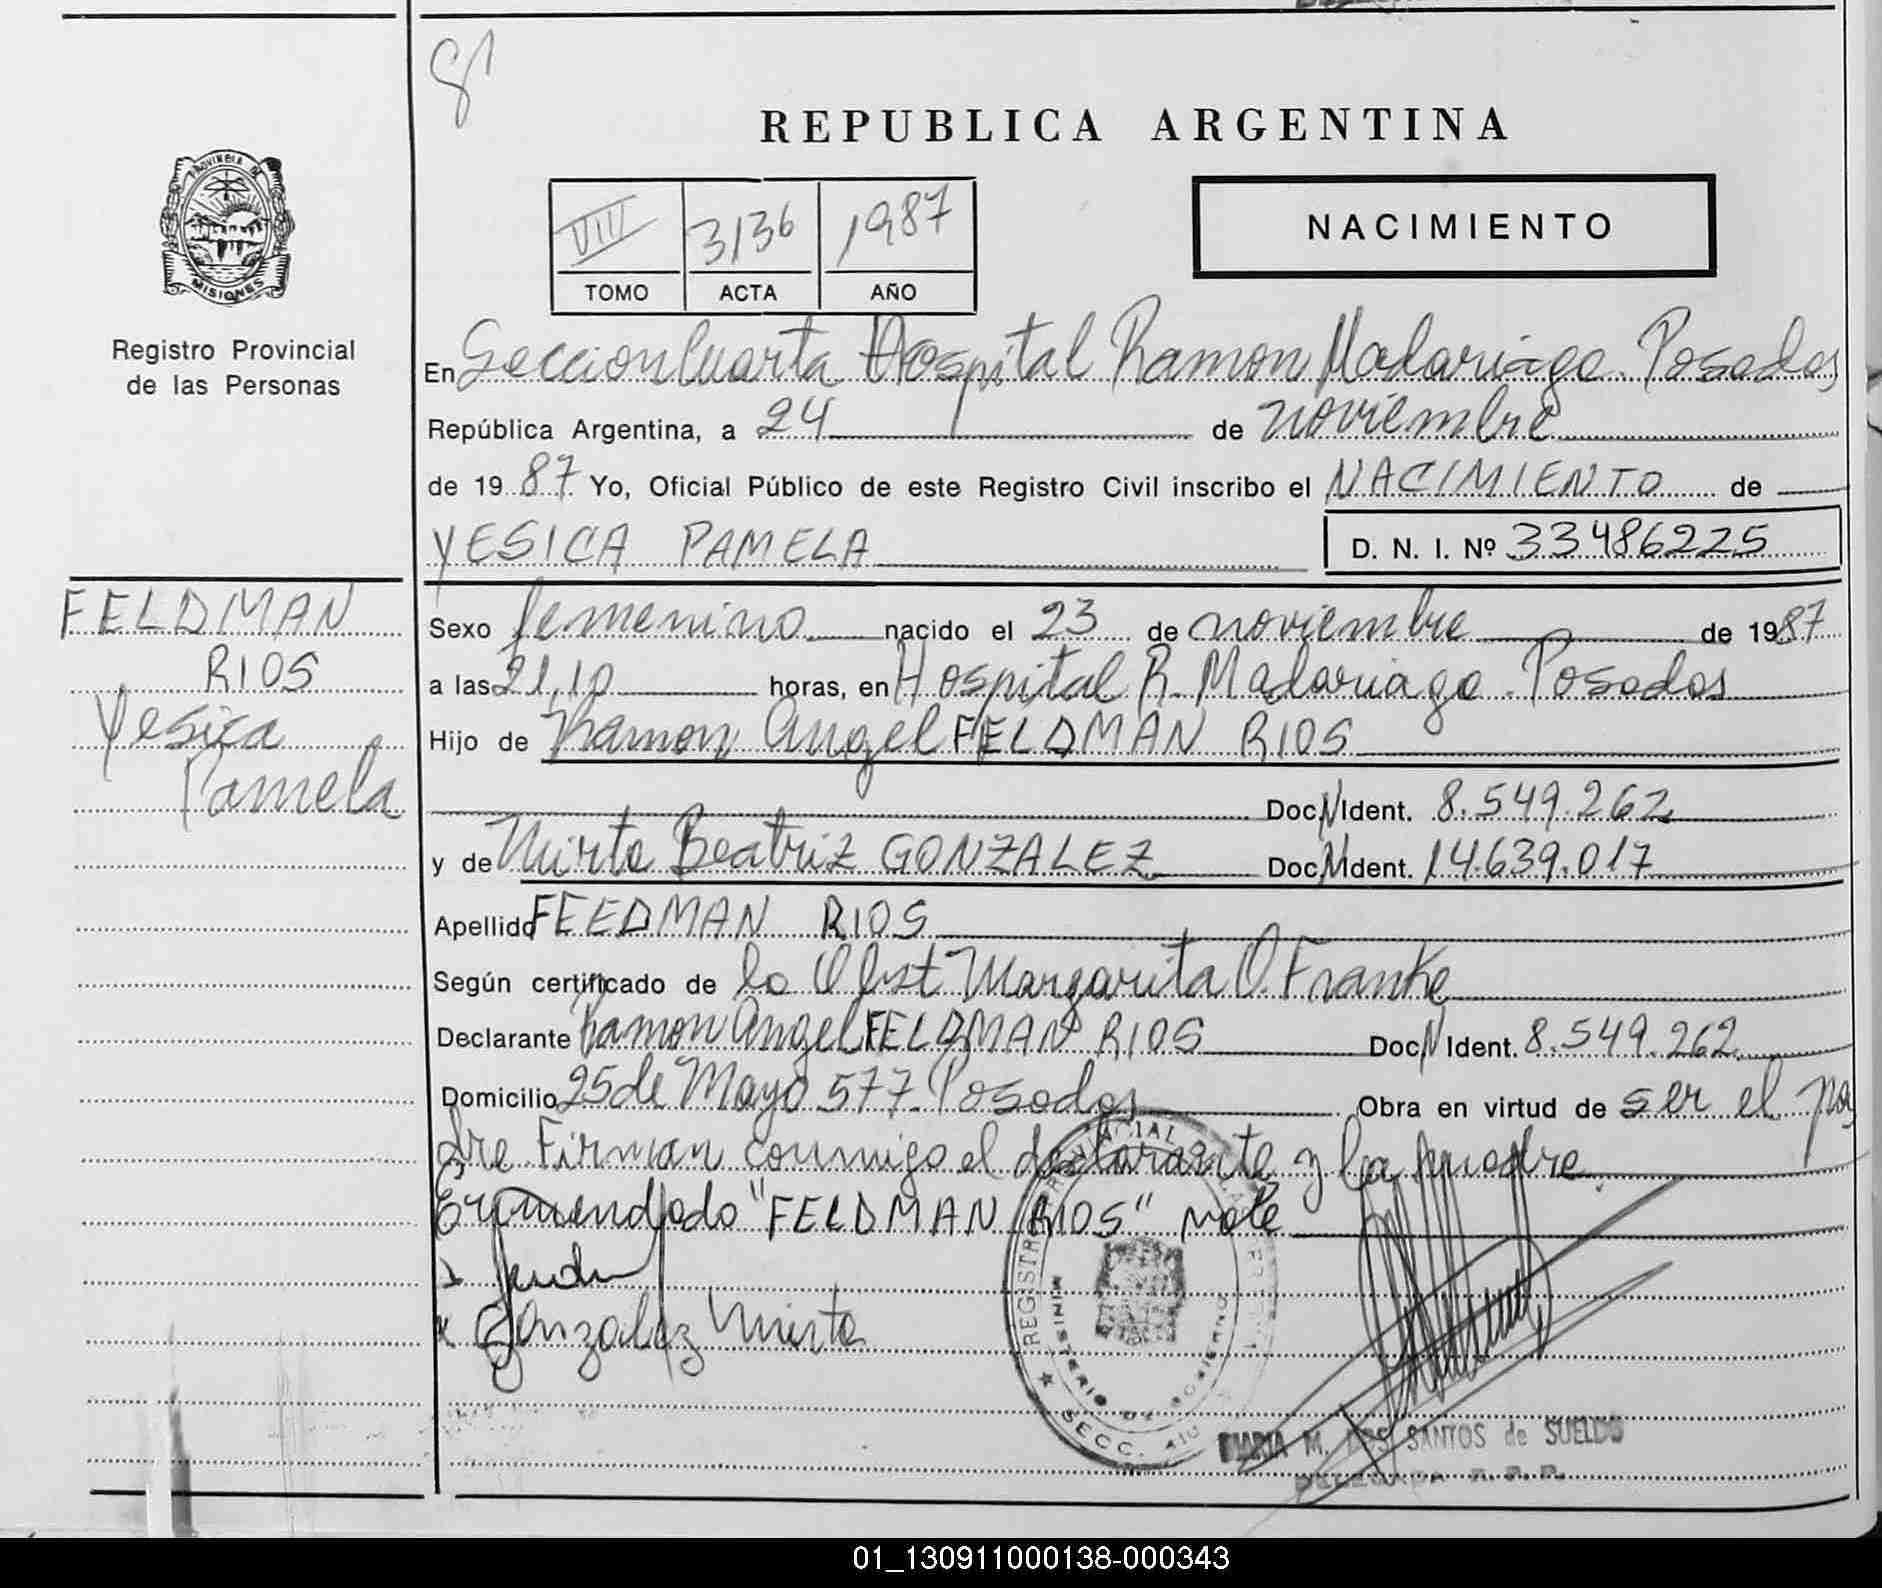 REPUBLICA ARGENTINA
PROVINCIA DE
MISIONES
Registro Provincial
de las Personas
VIII 3136 1987
TOMO ACTA AÑO
NACIMIENTO
En Seccion Cuarta Hospital Ramon Madariaga. Posadas
República Argentina, a 24 de noviembre
de 1987 Yo, Oficial Público de este Registro Civil inscribo el NACIMIENTO de
YESICA PAMELA D. N. I. Nº 33486225
FELDMAN
RIOS
Yesica
Pamela
Sexo femenino nacido el 23 de noviembre de 1987
a las 21,10 horas, en Hospital R. Madariaga. Posadas
Hijo de Ramon Angel FELDMAN RIOS
Doc N Ident. 8.549.262
y de Mirta Beatriz GONZALEZ Doc N Ident. 14.639.017
Apellido FELDMAN RIOS
Según certificado de la Obst Margarita O. Franke
Declarante Ramon Angel FELDMAN RIOS Doc N Ident. 8.549.262
Domicilio 25 de Mayo 577. Posadas Obra en virtud de ser el pa
dre Firman conmigo el declarante y la madre.
Enmendado "FELDMAN RIOS" vale
x Gonzalez Mirta
REGISTRO PROVINCIAL DE LAS PERSONAS
MINISTERIO DE GOBIERNO
SECC. 4TA
MARIA M. DOS SANTOS de SUELDO
DELEGADA R. P. P.
01_130911000138-000343